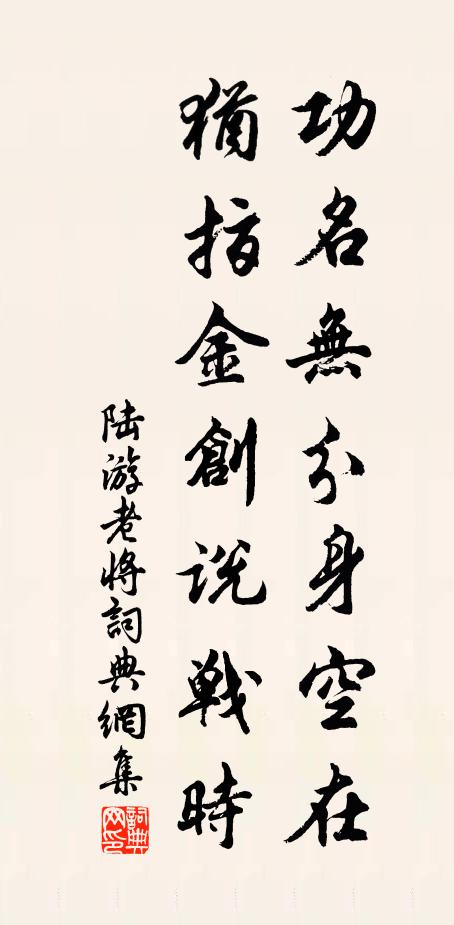 功名無分身空在
猶指金創説戰時
陸游老將詞典網集
詞典網印